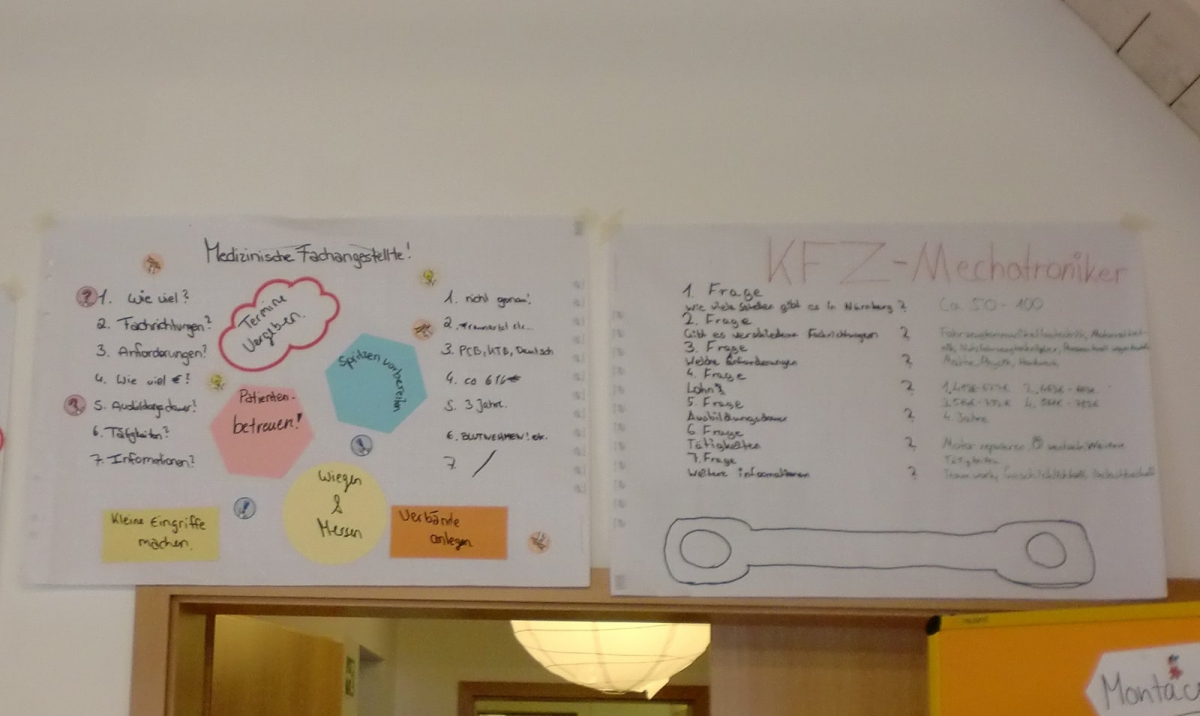 Medizinische Fachangestellte!
1. Wie viel?
2. Fachrichtungen?
3. Anforderungen?
4. Wie viel €!
5. Ausbildungsdauer!
6. Tätigkeiten?
7. Informationen?
Termine
Vergeben.
Spritzen vorbereiten
Patienten-
betreuen!
Wiegen
&
Messen
Kleine Eingriffe
machen.
Verbände
anlegen
1. nicht genau!
3. PCB, KTB, Deutsch
4. ca 616€
5. 3 Jahre.
6. BLUTNEHMEN! etc.
7. /
KFZ-Mechatroniker
1. Frage
Wie viele Stellen gibt es in Nürnberg?
Ca. 50-100
2. Frage
Gibt es verschiedene Fachrichtungen ?
3. Frage
Welche Anforderungen ?
Mathe, Physik, Handwerk
4. Frage
Lohn? ?
5. Frage
Ausbildungsdauer ?
4 Jahre
6. Frage
Tätigkeiten ?
Motor reparieren, Öl wechseln
7. Frage
Weitere informationen ?
Teamwork,
Montag